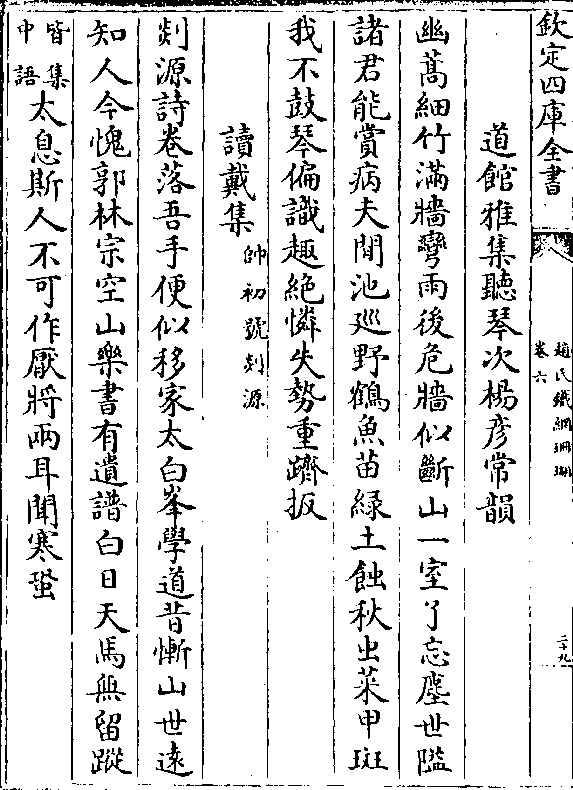 欽定四庫全書
趙氏鐵網珊瑚
卷六
二十九
道館雅集聽琴次楊彥常韻
幽蒿細竹滿牆彎雨後危牆似斷山一室了忘塵世隘
諸君能賞病夫閒池廵野鶴魚苗綠土蝕秋虫菜甲斑
我不鼓琴偏識趣絶憐失勢重躋扳
讀戴集帥初號剡源
剡源詩卷落吾手便似移家太白峯學道昔慚山世遠
知人今愧郭林宗空山樂書有遺譜白日天馬無留蹤
皆集中語太息斯人不可作厭將兩耳聞寒蛩